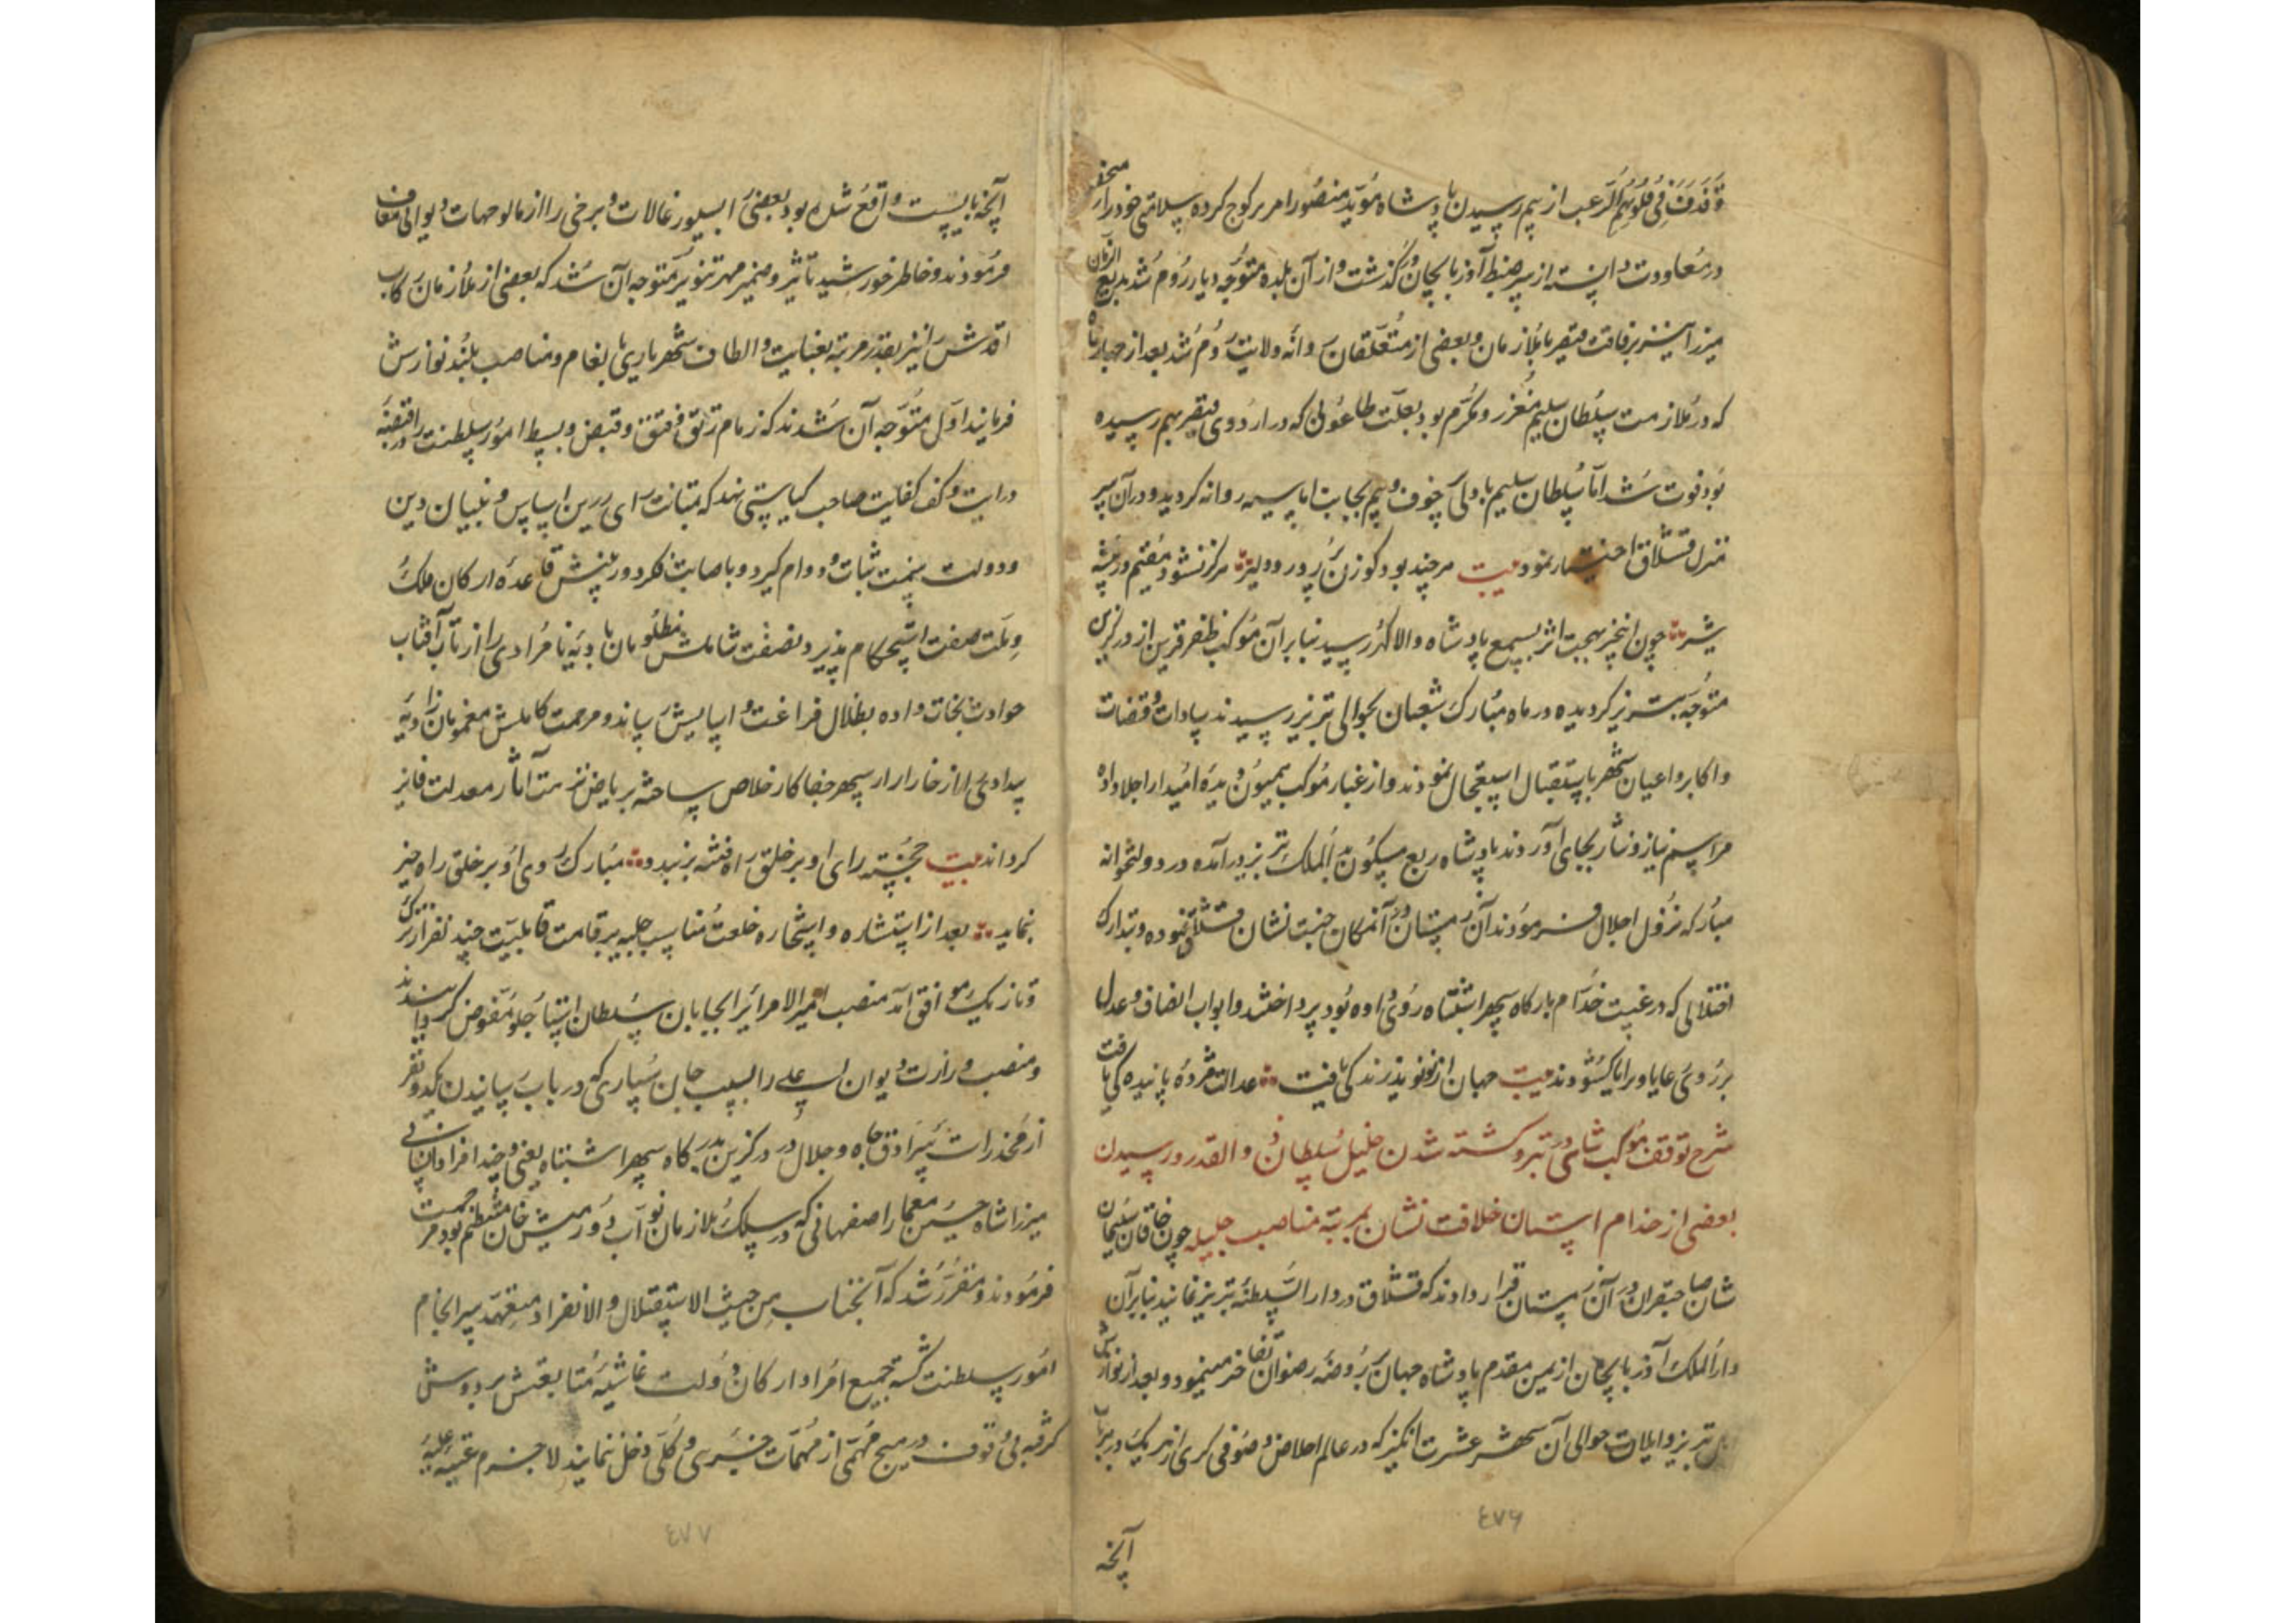 وَقَذَفَ فِی قُلُوبِهِمُ الرُّعبَ از بیم رسیدن پادشاه مؤید منصور امر بر کوچ کرده سلامتی خود را منحصر
در معاودت دانسته از سر ضبط آذربایجان درگذشت و از آن بلده متوجه دیار روم شد بدیع الزمان
میرزا نیز برفاقت قیصر با ملازمان و بعضی از متعلقان روانه ولایت روم شد بعد از چهار ماه
که در ملازمت سلطان سلیم معزز و مکرم بود بعلت طاعونی که در اردوی قیصر بهم رسیده
بود فوت شد اما سلطان سلیم با دلی پر خوف و بیم بجانب اماسیه روانه گردید و در آن سر
منزل قشلاق اختیار نمود بیت هر چند بود گوزن پرزور و دلیر هرگز نشود مقیم در بیشه
شیر چون این خبر بهجت اثر بسمع پادشاه والا گهر رسید بنابر آن موکب ظفر قرین از درگزین
متوجه تبریز گردیده در ماه مبارک شعبان بحوالی تبریز رسیدند سادات و قضات
و اکابر و اعیان شهر باستقبال استعجال نمودند و از غبار موکب همیون دیده امید را جلا داده
مراسم نیاز و نثار بجای آوردند پادشاه ربع مسکون بدارالملک تبریز درآمده در دولتخانه
مبارکه نزول اجلال فرمودند آن زمستان در آن مکان جنت نشان قشلاق نموده و بتدارک
اختلالی که در غیبت خدام بارگاه سپهر اشتباه روی داده بود پرداختند و ابواب انصاف و عدل
بر روی رعایا و برایا گشودند بیت جهان از نو نوید زندگی یافت عدالت مژده پایندگی یافت
شرح توقف موکب شاهی در تبریز و کشته شدن خلیل سلطان ذوالقدر و رسیدن
بعضی از خدام آستان خلافت نشان بمرتبه مناصب جلیله چون خاقان سلیمان
شان صاحبقران در آن زمستان قرار دادند که قشلاق در دارالسلطنه تبریز نمایند بنابرآن
دارالملک آذربایجان از یمن مقدم پادشاه جهان بر روضه رضوان تفاخر مینمود و بعد از نوازش
اهل تبریز و ایلات حوالی آن شهر عشرت انگیز که در عالم اخلاص و صوفی گری از هر یک در هر باب
آنچه
٤٧٦
آنچه بایست واقع شده بود بعضی را بسیورغالات و برخی را از مالوجهات دیوانی معاف
فرمودند و خاطر خورشید تاثیر و ضمیر مهر تنویر متوجه آن شد که بعضی از ملازمان رکاب
اقدس را نیز بقدر مرتبه بعنایت و الطاف شهریاری بانعام و مناصب بلند نوازش
فرمایند اول متوجه آن شدند که زمام رتق و فتق و قبض و بسط امور سلطنت را در قبضه
درایت و کف کفایت صاحب کیاستی نهد که بمتانت رای رزین اساس و بنیان دین
و دولت سمت ثبات و دوام گیرد و باصابت فکر دوربینش قاعده ارکان ملک
و ملت صفت استحکام پذیرد نصفت شاملش مظلومان بادیه نامرادی را از تاب آفتاب
حوادث نجات داده بظلال فراغت و آسایش رساند و مرحمت کاملش مغمومان زاویه
بیدادی را از خار آزار سپهر جفا کار خلاص ساخته بریاض نزهت آثار معدلت فایز
گرداند بیت خجسته رای او بر خلق راه فتنه بربندد مبارک روی او بر خلق راه خیر
بنماید بعد از استشاره و استخاره خلعت مناسب جلیله بر قامت قابلیت چند نفر از ترک
و تازیک موافق آمد منصب امیرالامرائی را بجایان سلطان استاجلو مفوض گردانیدند
و منصب وزارت دیوان اعلی را بسبب جان سپاری که در باب رسانیدن یکدو نفر
از مخدرات سرادق جاه و جلال در درگزین بدرگاه سپهر اشتباه یعنی
میرزا شاه حسین معمار اصفهانی که در سلک ملازمان نواب دورمیش خان منتظم بود مرحمت
فرمودند و مقرر شد که آنجناب من حیث الاستقلال و الانفراد متعهد سرانجام
امور سلطنت گشته جمیع امرا و ارکان دولت غاشیه متابعتش بر دوش
گرفته بی وقوف در هیچ مهمی از مهمات جزئی و کلی دخل ننمایند لاجرم عتبه علیه
٤٧٧